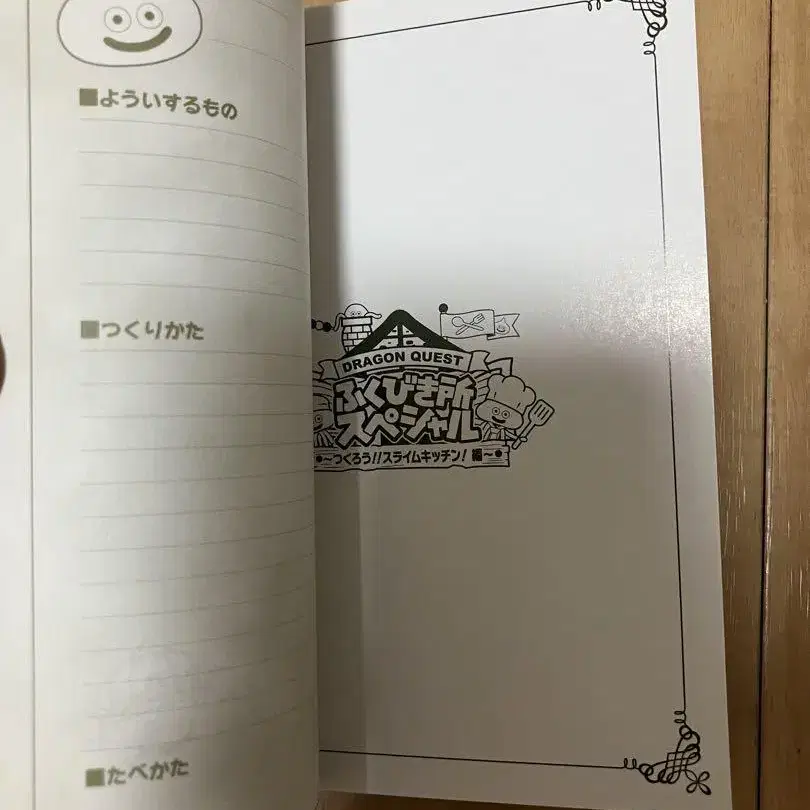 ■よういするもの
■つくりかた
■たべかた
DRAGON QUEST
ふくびき所
スペシャル
～つくろう!!スライムキッチン! 編～